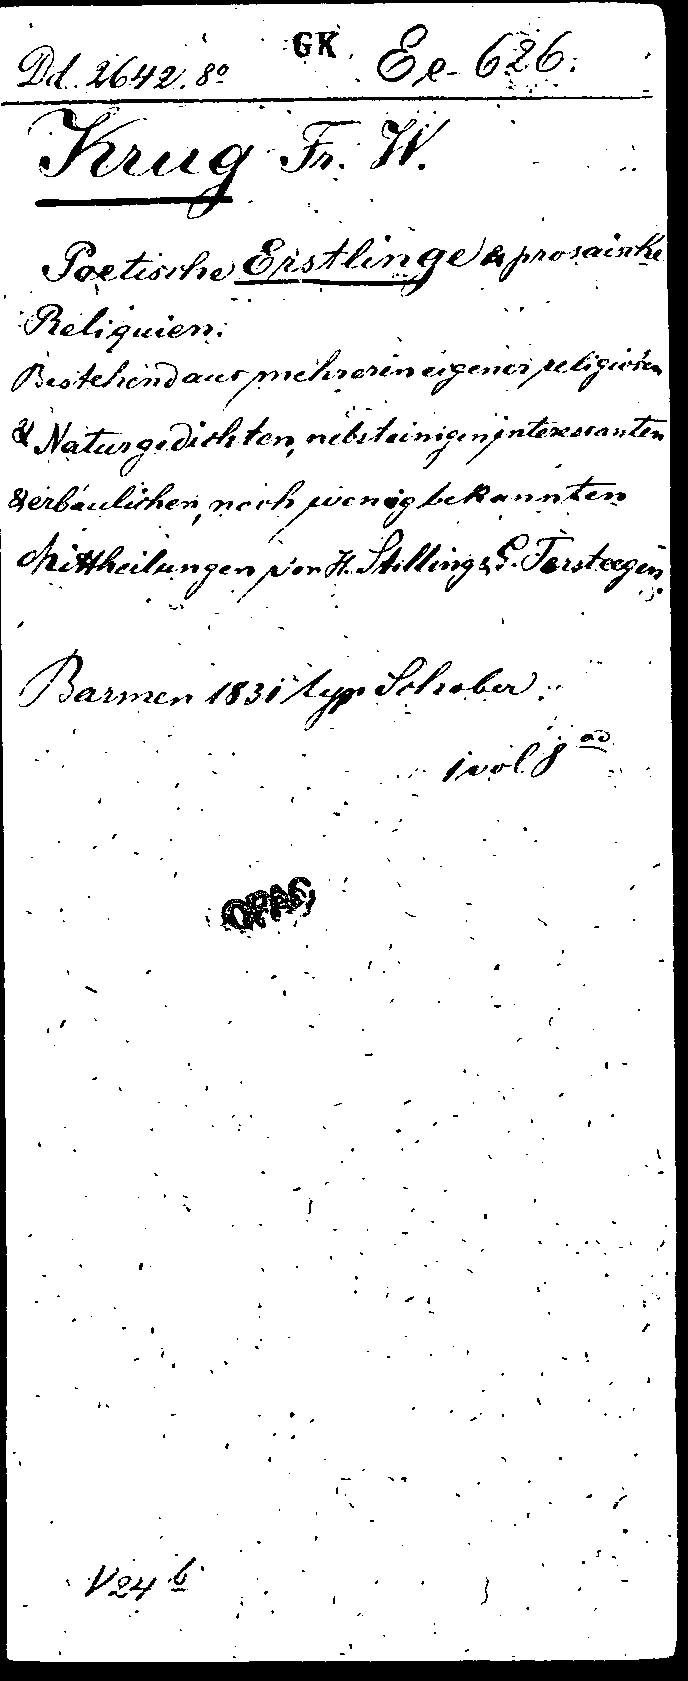 Dd. 2642. 8º GK Ee. 626.
Krug Fr. W.
Poetische Erstlinge & prosaische
Reliquien.
Bestehend aus mehreren eigener religiösen
& Naturgedichten, nebst einigen interessanten
& erbaulichen, noch wenig bekannten
Mittheilungen von H. Stilling & G. Tersteegen.
Barmen 1831 typ Schober.
1 vol 8
OPAC
V24 b